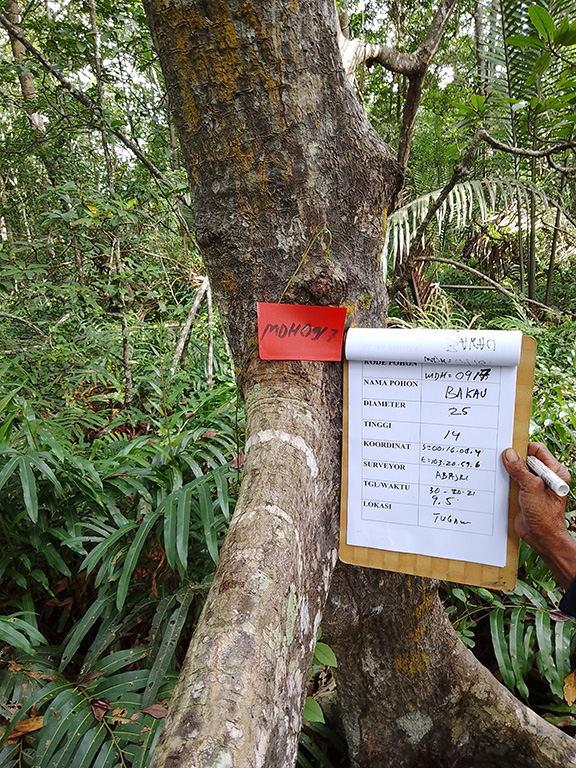 MDH0917
KODE POHON MDH=0917
NAMA POHON BAKAU
DIAMETER 25
TINGGI 14
KOORDINAT S=00.16.08.4
E=103.20.59.6
SURVEYOR
TGL/WAKTU 30-20-21
9.5
LOKASI